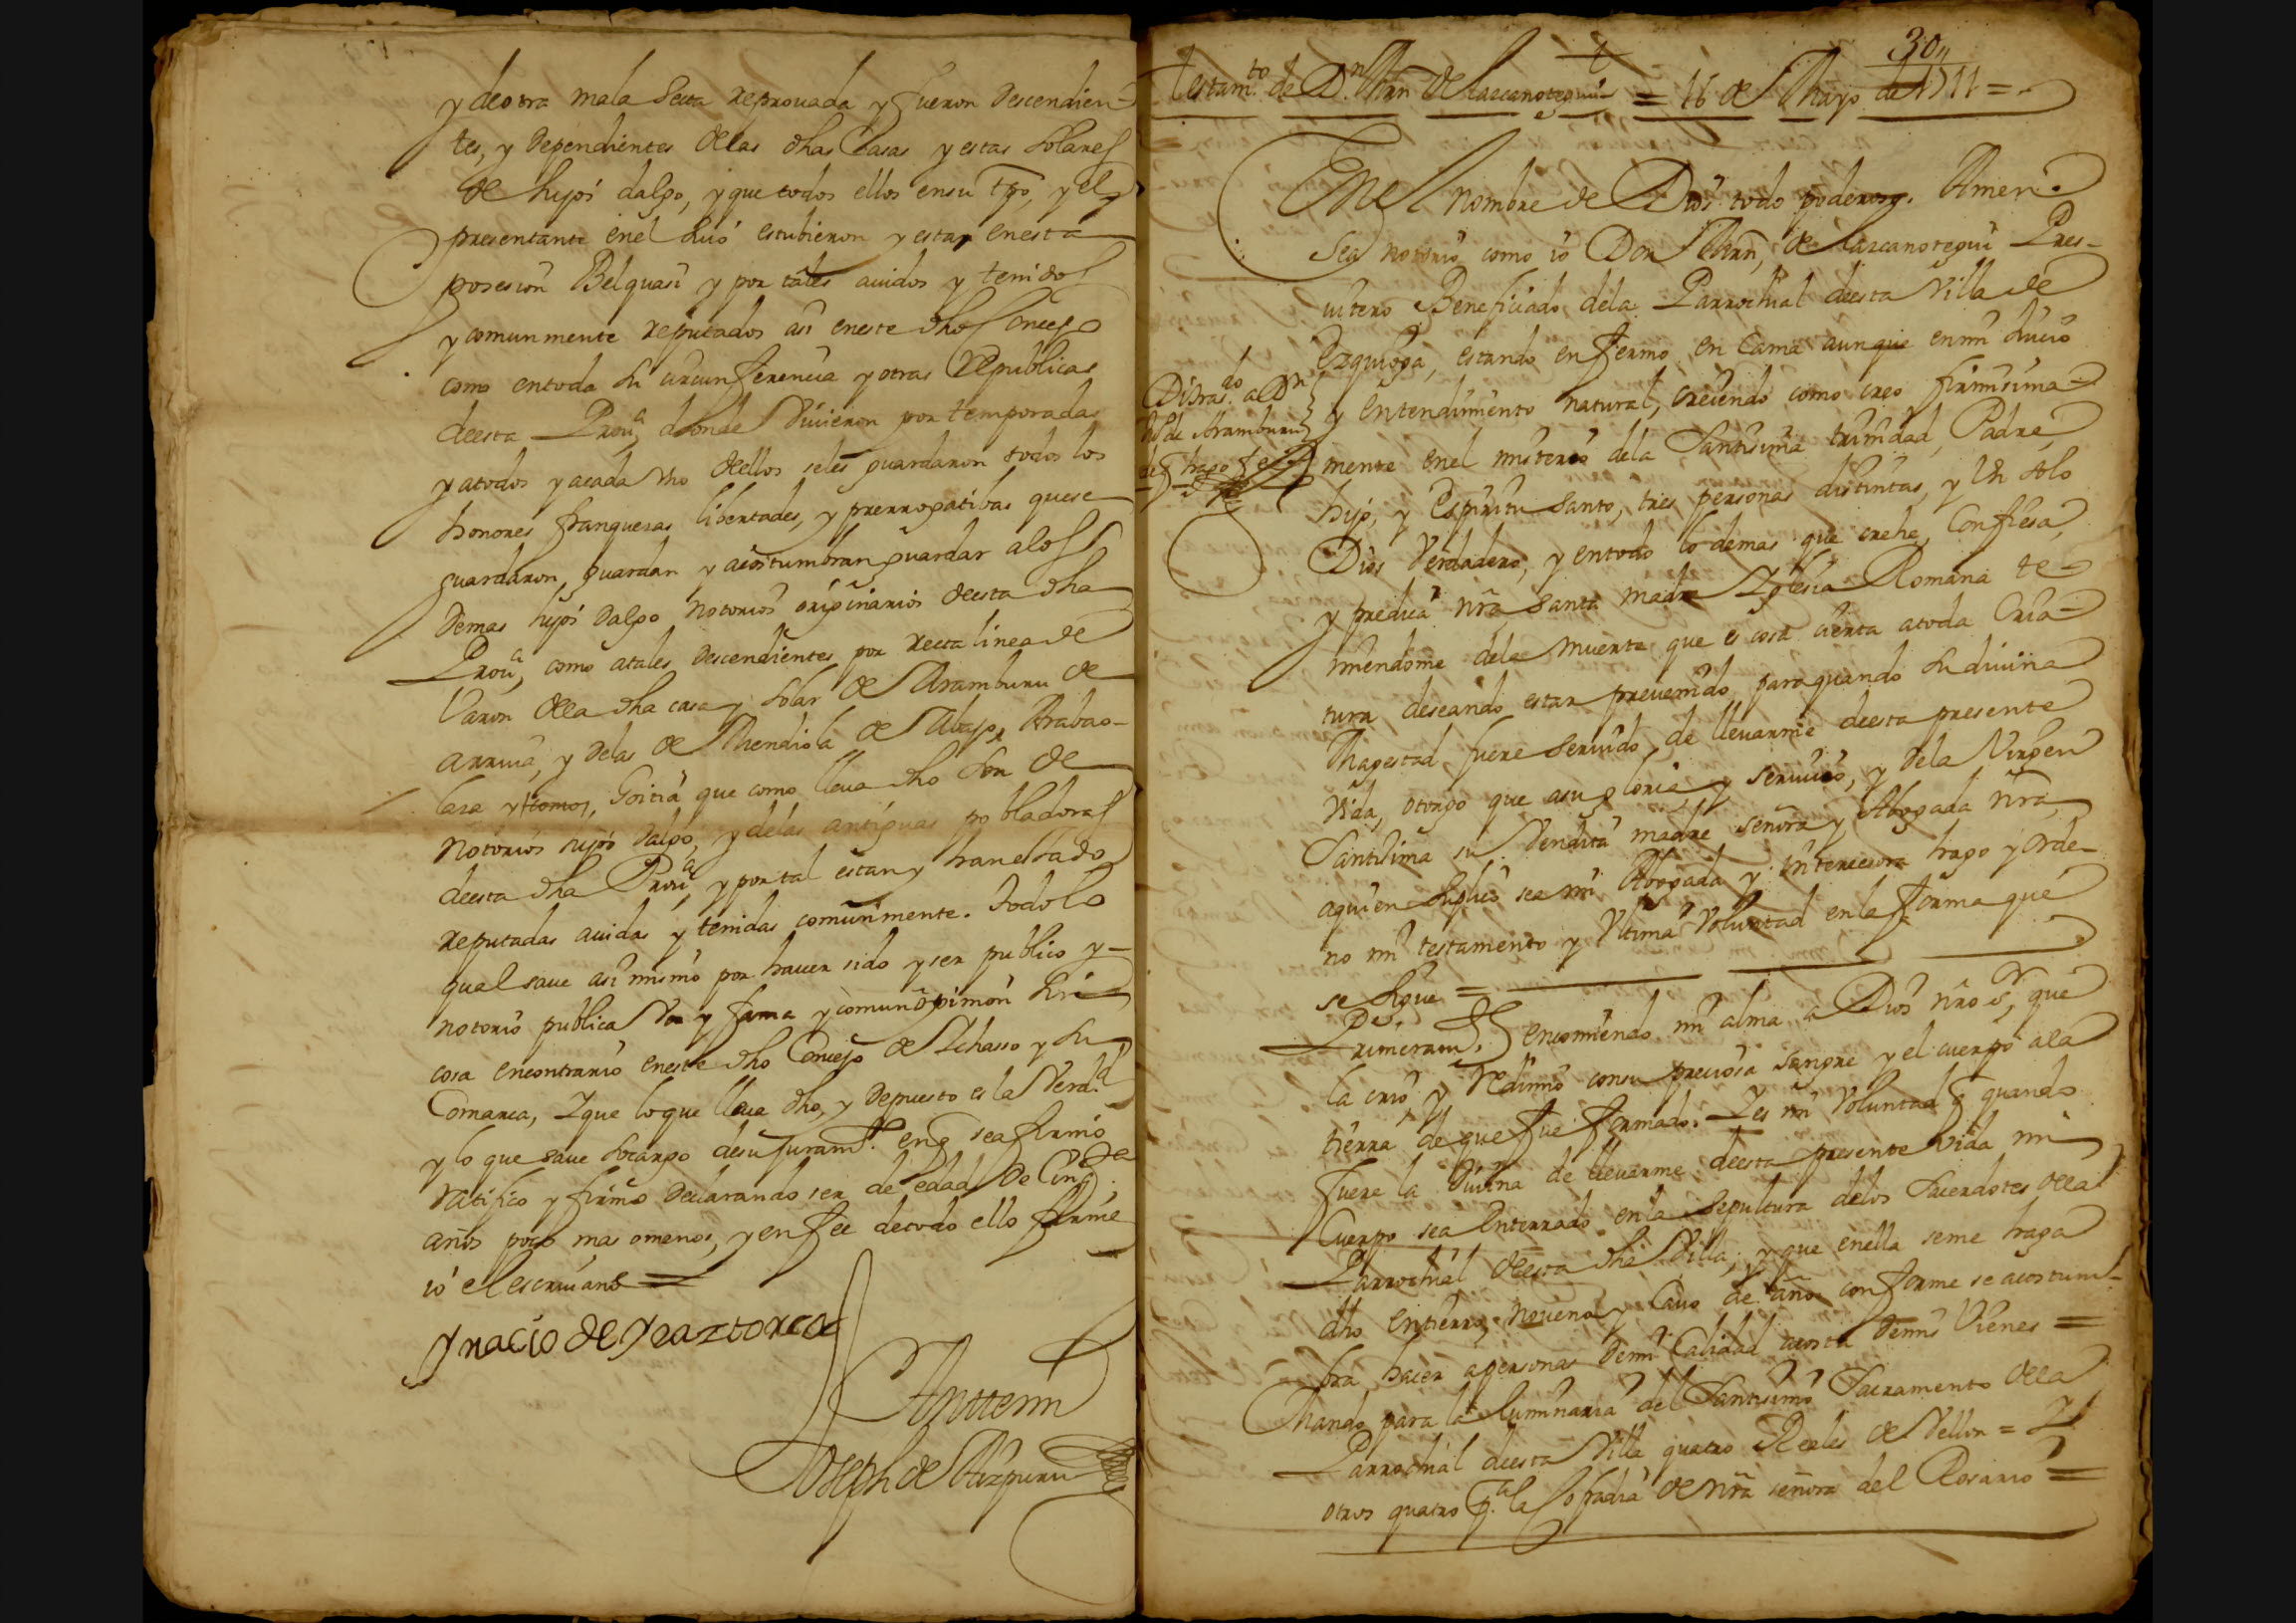 y de otra mala Secta reprouada y fueron descendien-
tes, y dependientes de las dhas Casas y estas solares
de hijos dalgo, y que todos ellos en su tpo, y el
presentante en el suio estubieron y estan en esta
posesion Belquasi y por tales auidos y tenidos
y comunmente reputados asi en este dho Concejo
como en toda su circunferencia y otras Republicas
de esta Prouª donde Viuieron por temporadas
y a todos y a cada vno de ellos se les guardaron todos los
honores franquesas libertades, y prerrogatibas que se
guardaron, guardan y acostumbran guardar a los
demas hijos dalgo notorios originarios de esta dha
Prouª, como a tales descendientes por recta linea de
Varon de la dha casa y solar de Aramburu de
arriua, y de las de Mendiola de Abajo, Arabao-
laza y Goitia que como lleua dho son de
notorios hijos dalgo, y de las antiguas pobladoras
de esta dha Prouª, y por tal estan y han estado
reputadas auidas y tenidas comunmente. Todo lo
qual saue asi mismo por hauer sido y ser publico y
notorio publica Voz y fama y comun opinion sin
cosa en contrario en este dho Concejo de Ichasso y su
Comarca, Y que lo que lleua dho, y depuesto es la Verd.d
y lo que saue so cargo de su Juram.to en q se afirmó
Ratifico y firmó declarando ser de edad de Cinq.ta
años poco mas o menos, y en fee de todo ello firme
io el escriuano =
Ynacio de Yeaztorca
Antte mi
Joseph de Aizpuru
30
Testam.to de D.n Mrn de Lazcanotegui = 16 de Mayo de 1711 =
En el Nombre de Dios todo poderoso. Amen.
Sea notorio como io Don Mrn, de Lazcanotegui Pres-
uitero Beneficiado de la Parrochial de esta Villa de
Ezquioga, estando enfermo en Cama aunque en mi Juicio
y entendimiento natural, creiendo como creo firmisima-
mente en el misterio de la Santisima trinidad, Padre,
hijo, y Espiritu Santo, tres personas distintas, y Un solo
Dios Verdadero, y en todo lo demas que crehe, Confiesa,
y predica nrã Santa madre Yglesia Romana te-
miendome de la muerte que es cosa cierta a toda Cria-
tura deseando estar preuenido para quando su diuina
Magestad fuere seruido, de lleuarme de esta presente
Vida, otorgo que a su gloria, y seruicio, y de la Virgen
Santisima su Vendita madre señora y Abogada nrã,
a quien suplico sea mi Abogada y intercesora hago y orde-
no mi testamento y Vltima Voluntad en la forma que
se sigue =
Primeram.te encomiendo mi alma a Dios nrõ s.r, que
la crió y Redimió con su preciosa sangre y el cuerpo a la
tierra de que fue formado. Y es mi Voluntad q quando
fuere la Diuina de lleuarme de esta presente Vida mi
Cuerpo sea Enterrado en la sepultura de los Sacerdotes de la
Parrochial de esta dha Villa, y que en ella se me haga
dho entierro, nouena y Cauo de año conforme se acostum-
bra hacer a personas de mi Calidad acosta de mis Vienes =
Mando para la Luminaria del Santisimo Sacramento de la
Parrochial de esta Villa quatro Reales de Vellon = Y
otros quatro p.ª la Cofradia de Nrã señora del Rosario =
Di tras.do a D.n
de Aramburu